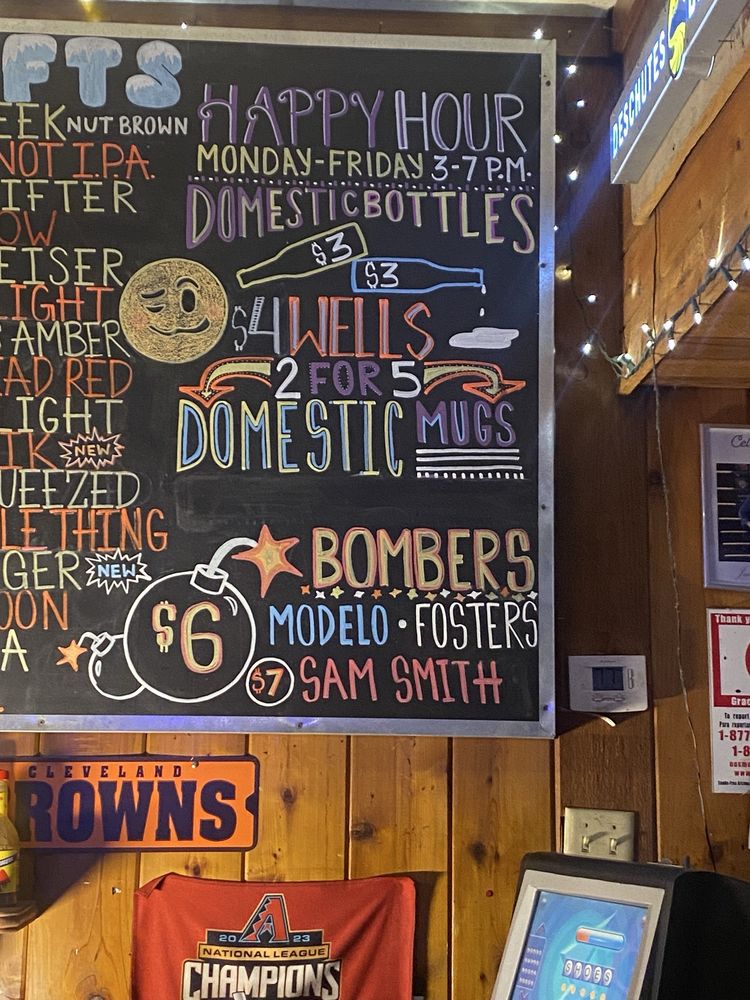 FTS
EEK NUT BROWN
NOT I.P.A.
IFTER
OW
EISER
LIGHT
AMBER
EAD RED
LIGHT
IK NEW
UEEZED
LE THING
GER NEW
OON
A
HAPPY HOUR
MONDAY-FRIDAY 3-7 P.M.
DOMESTIC BOTTLES
$3
$3
$4 WELLS
2 FOR 5
DOMESTIC MUGS
BOMBERS
$6 MODELO • FOSTERS
$7 SAM SMITH
DESCHUTES
CLEVELAND
ROWNS
2023
NATIONAL LEAGUE
CHAMPIONS
Thank y
1-877
1-8
SHOES